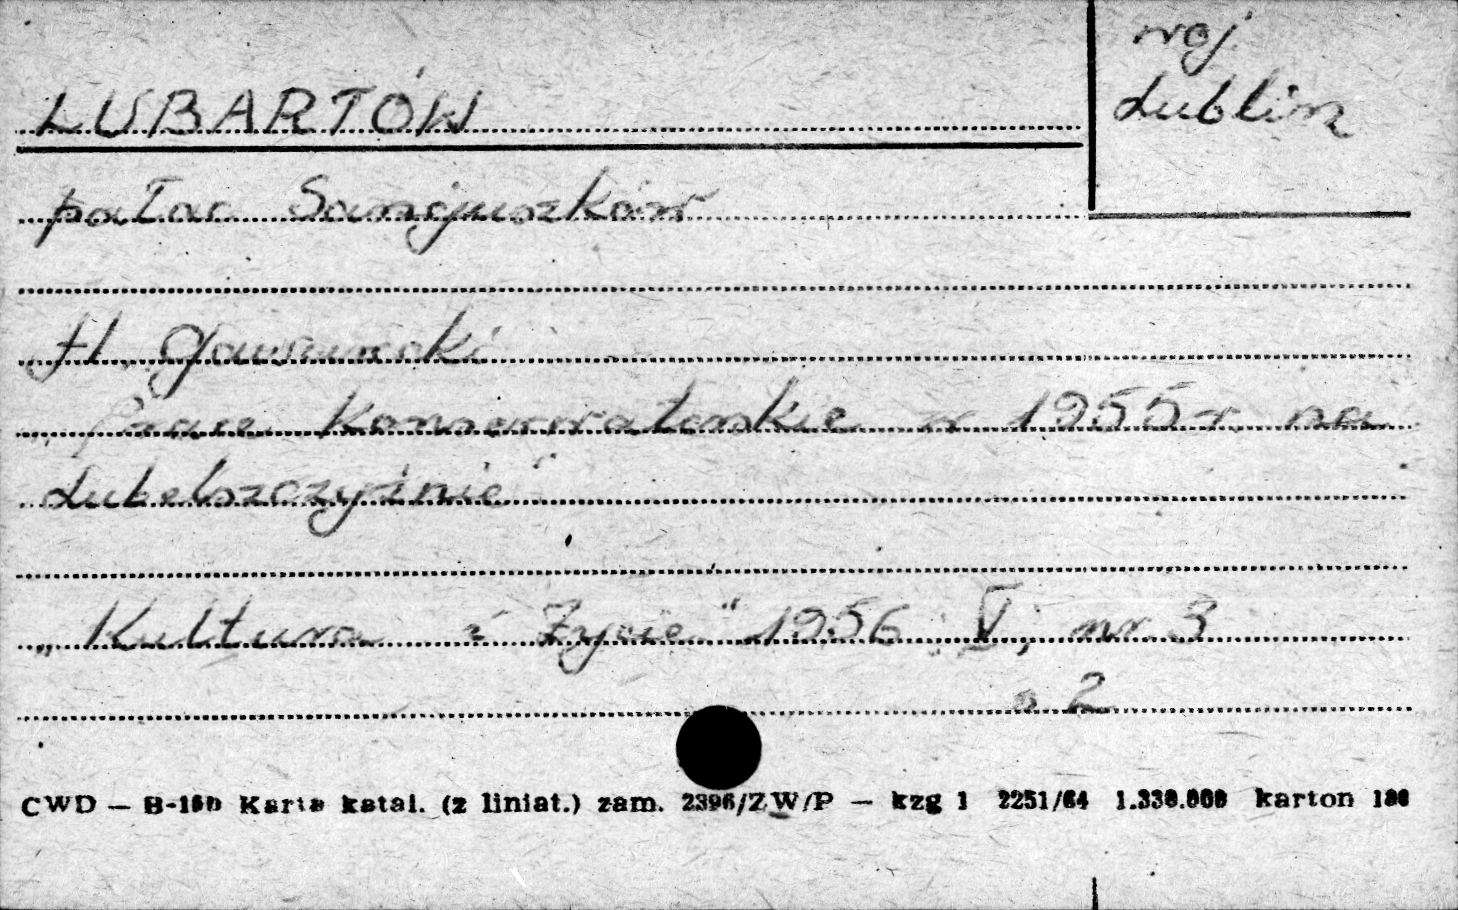 LUBARTÓW
woj.
Lublin
pałac Sanguszków
H. Gawarecki
„Prace Konserwatorskie w 1955 r. na
Lubelszczyźnie"
„Kultura i Życie" 1956, V, nr 3
s 2
CWD — B-16b Karta katal. (z liniat.) zam. 2396/ZW/P — kzg 1 2251/64 1.330.000 karton